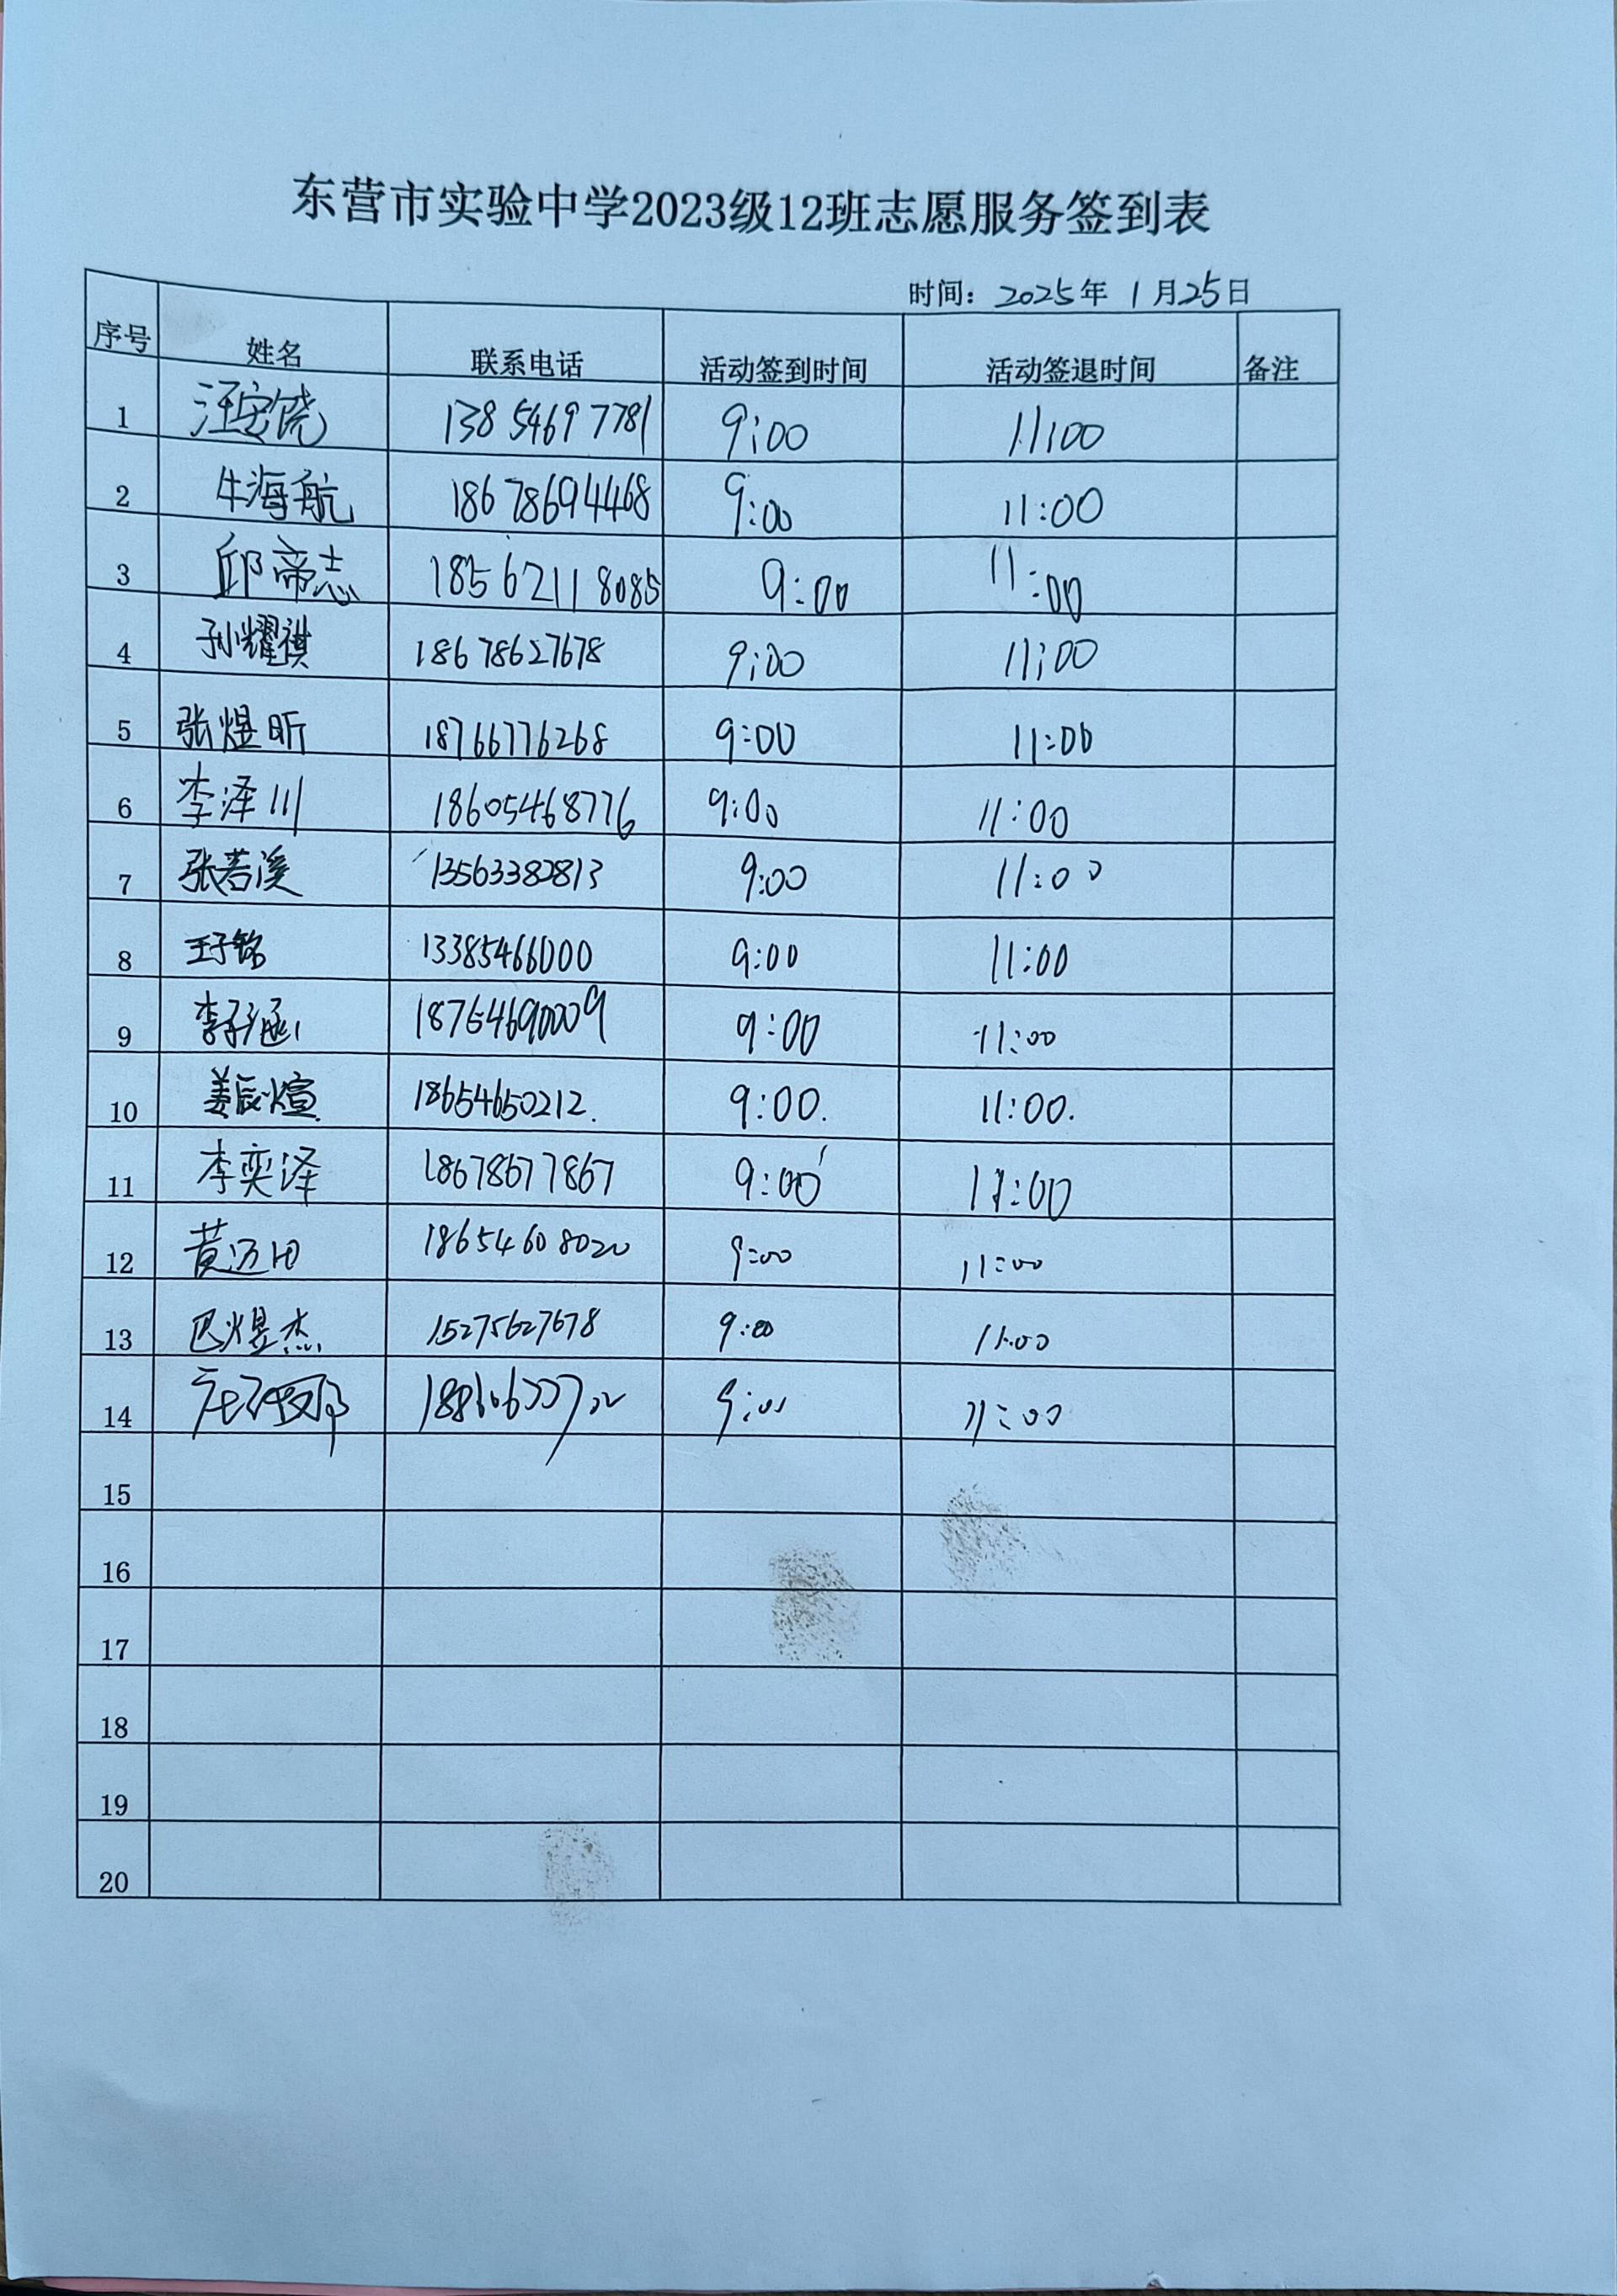 东营市实验中学2023级12班志愿服务签到表
时间：2025年 1月25日
序号 姓名 联系电话 活动签到时间 活动签退时间 备注
1 汪安饶 13854697781 9:00 11:00
2 牛海航 18678694468 9:00 11:00
3 邱帝志 18562118085 9:00 11:00
4 孙耀祺 18678627678 9:00 11:00
5 张煜昕 18766776268 9:00 11:00
6 李泽川 18605468776 9:00 11:00
7 张若溪 13563382813 9:00 11:00
8 王子铭 13385466000 9:00 11:00
9 李子涵 18764690009 9:00 11:00
10 姜辰煊 18654650212. 9:00. 11:00.
11 李奕泽 18678677867 9:00 11:00
12 黄迈田 18654608020 9:00 11:00
13 巴煜杰 15275627678 9:00 11:00
14 9:00 11:00
15
16
17
18
19
20